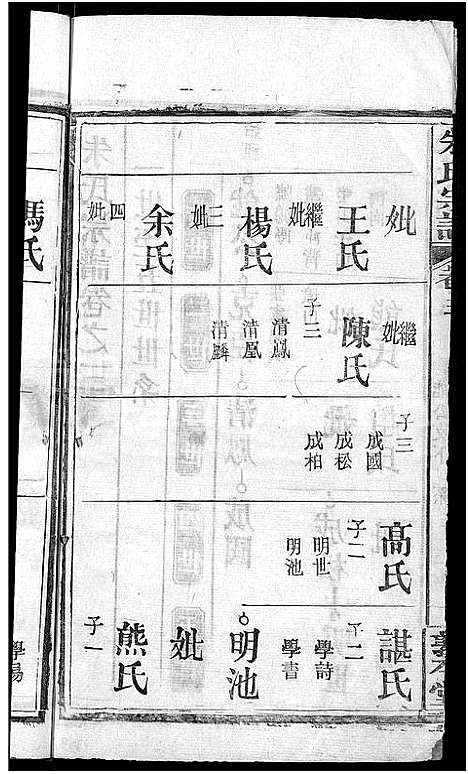 朱氏宗譜
妣
王氏
繼妣
楊氏
三妣
余氏
四妣
繼妣
陳氏
子三
清鳳
清凰
清麟
子三
成國
成松
成柏
高氏
子二
明世
明池
諶氏
子二
學詩
學書
明池
妣
熊氏
子一
馮氏
學易